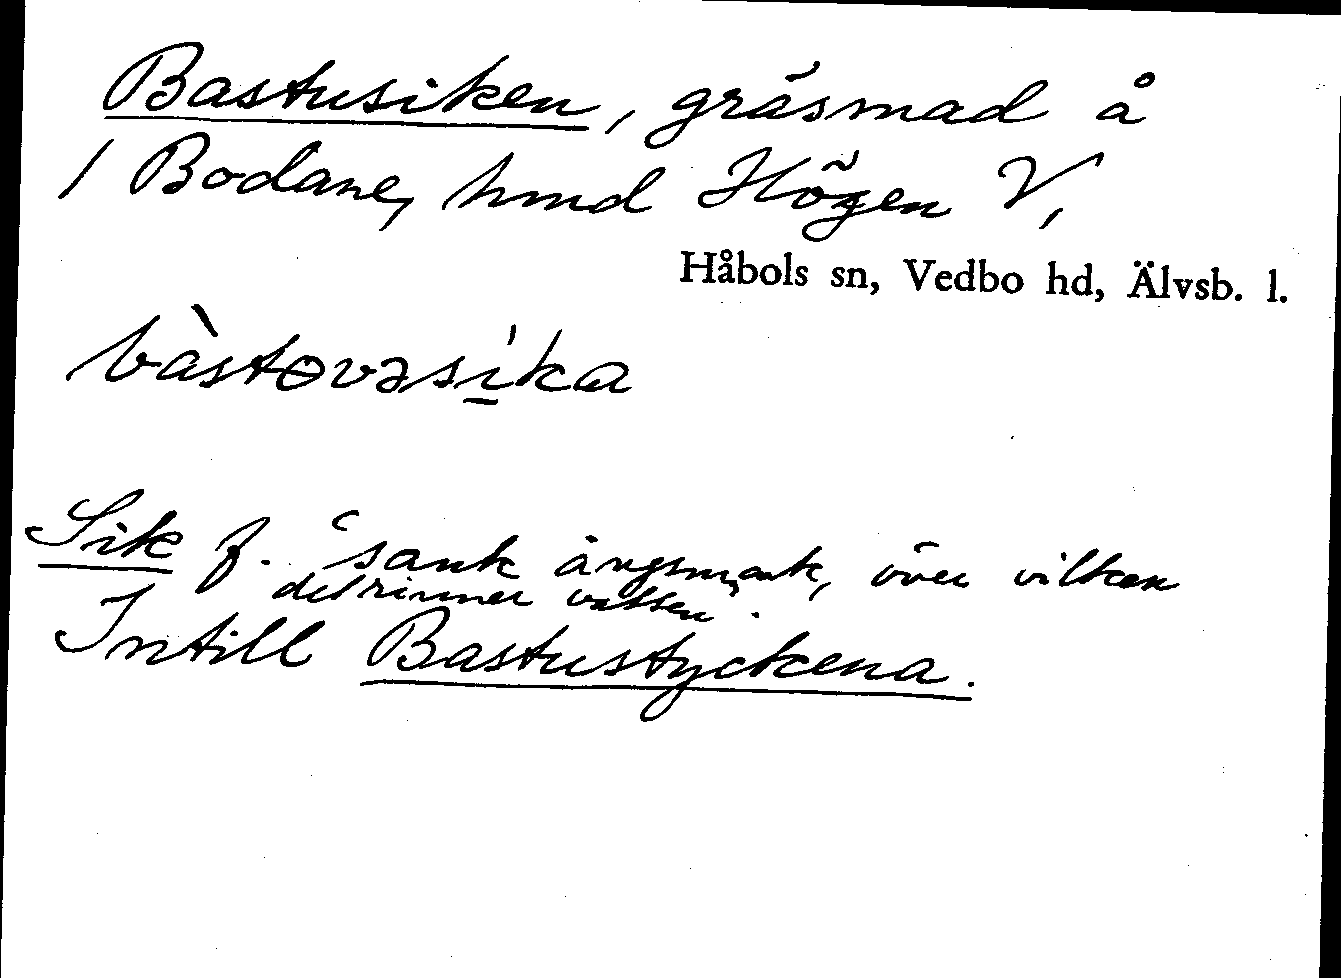 Bastusiken, gräsmad å
1 Bodane, hmd Högen V,
Håbols sn, Vedbo hd, Älvsb. l.
bàstɵvəsi̱'ka
Sik f. "sank ängsmark, över vilken
det rinner vatten".
Intill Bastustyckena.